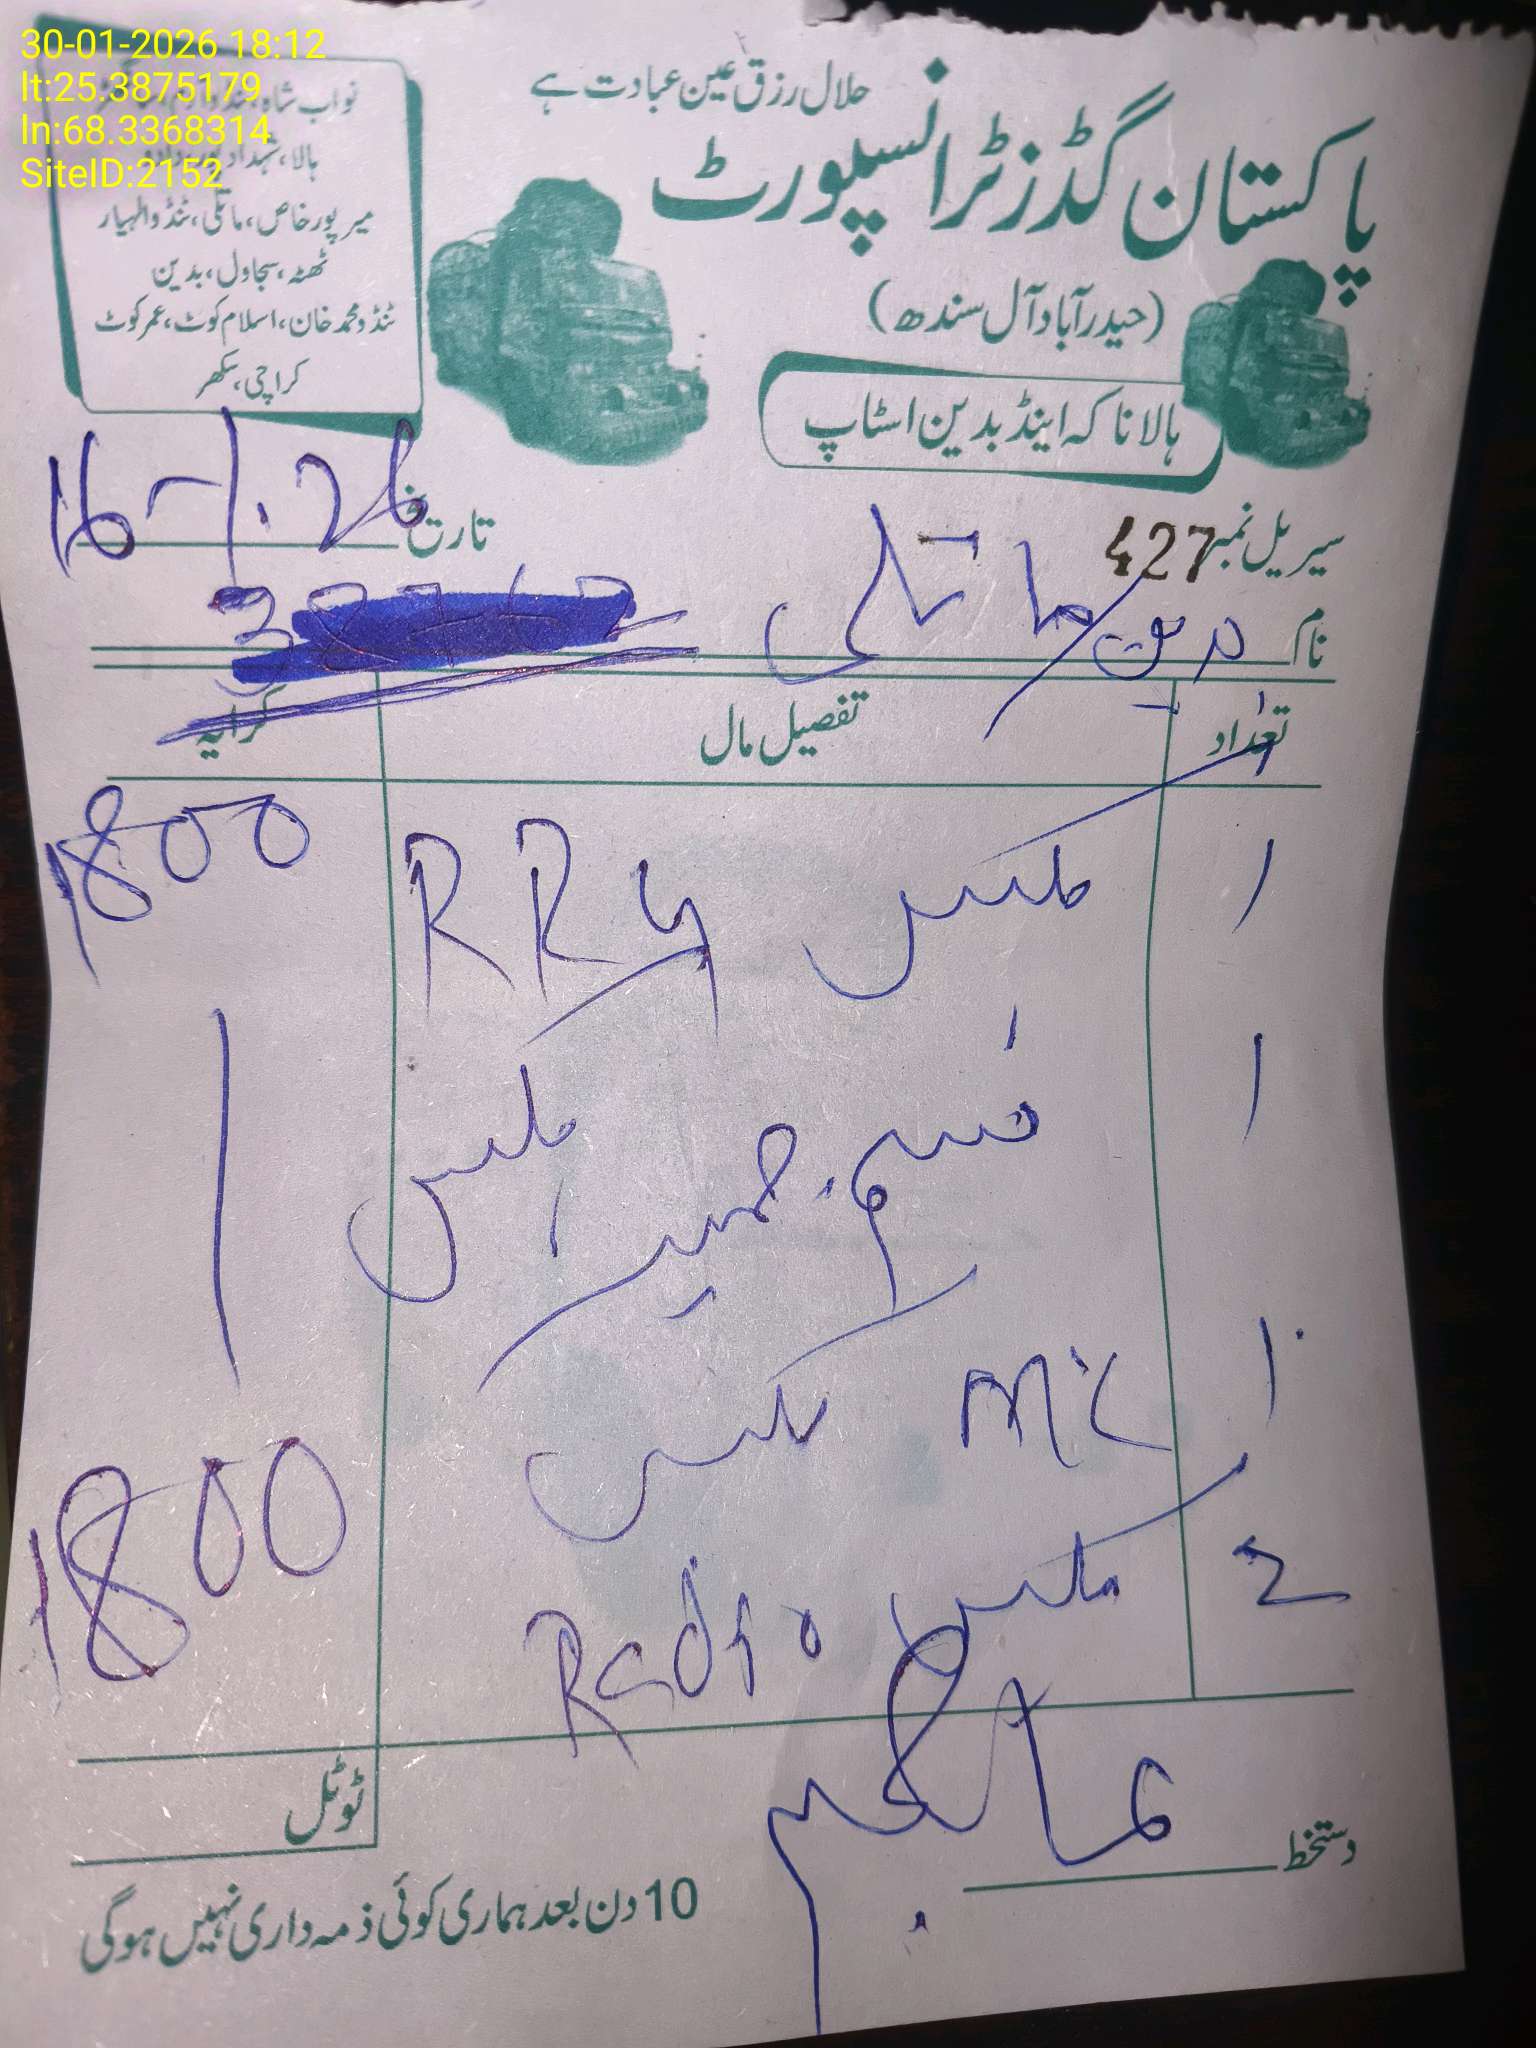 30-01-2026 18:12
lt:25.3875179
ln:68.3368314
SiteID:2152
حلال رزق عین عبادت ہے
پاکستان گڈز ٹرانسپورٹ
(حیدرآباد آل سندھ)
ہالا ناکہ اینڈ بدین اسٹاپ
نواب شاہ،
ہالا، شہداد
میرپورخاص، ماتلی، ٹنڈوالہیار
ٹھٹہ، سجاول، بدین
ٹنڈومحمدخان، اسلام کوٹ، عمرکوٹ
کراچی، سکھر
سیریل نمبر 427 تاریخ 16-1-26
نام ماتلی
تعداد تفصیل مال کرایہ
1 بکس RRU 1800
1 بکس
1 بکس
2 بکس Radio 1800
ٹوٹل
دستخط
10 دن بعد ہماری کوئی ذمہ داری نہیں ہوگی